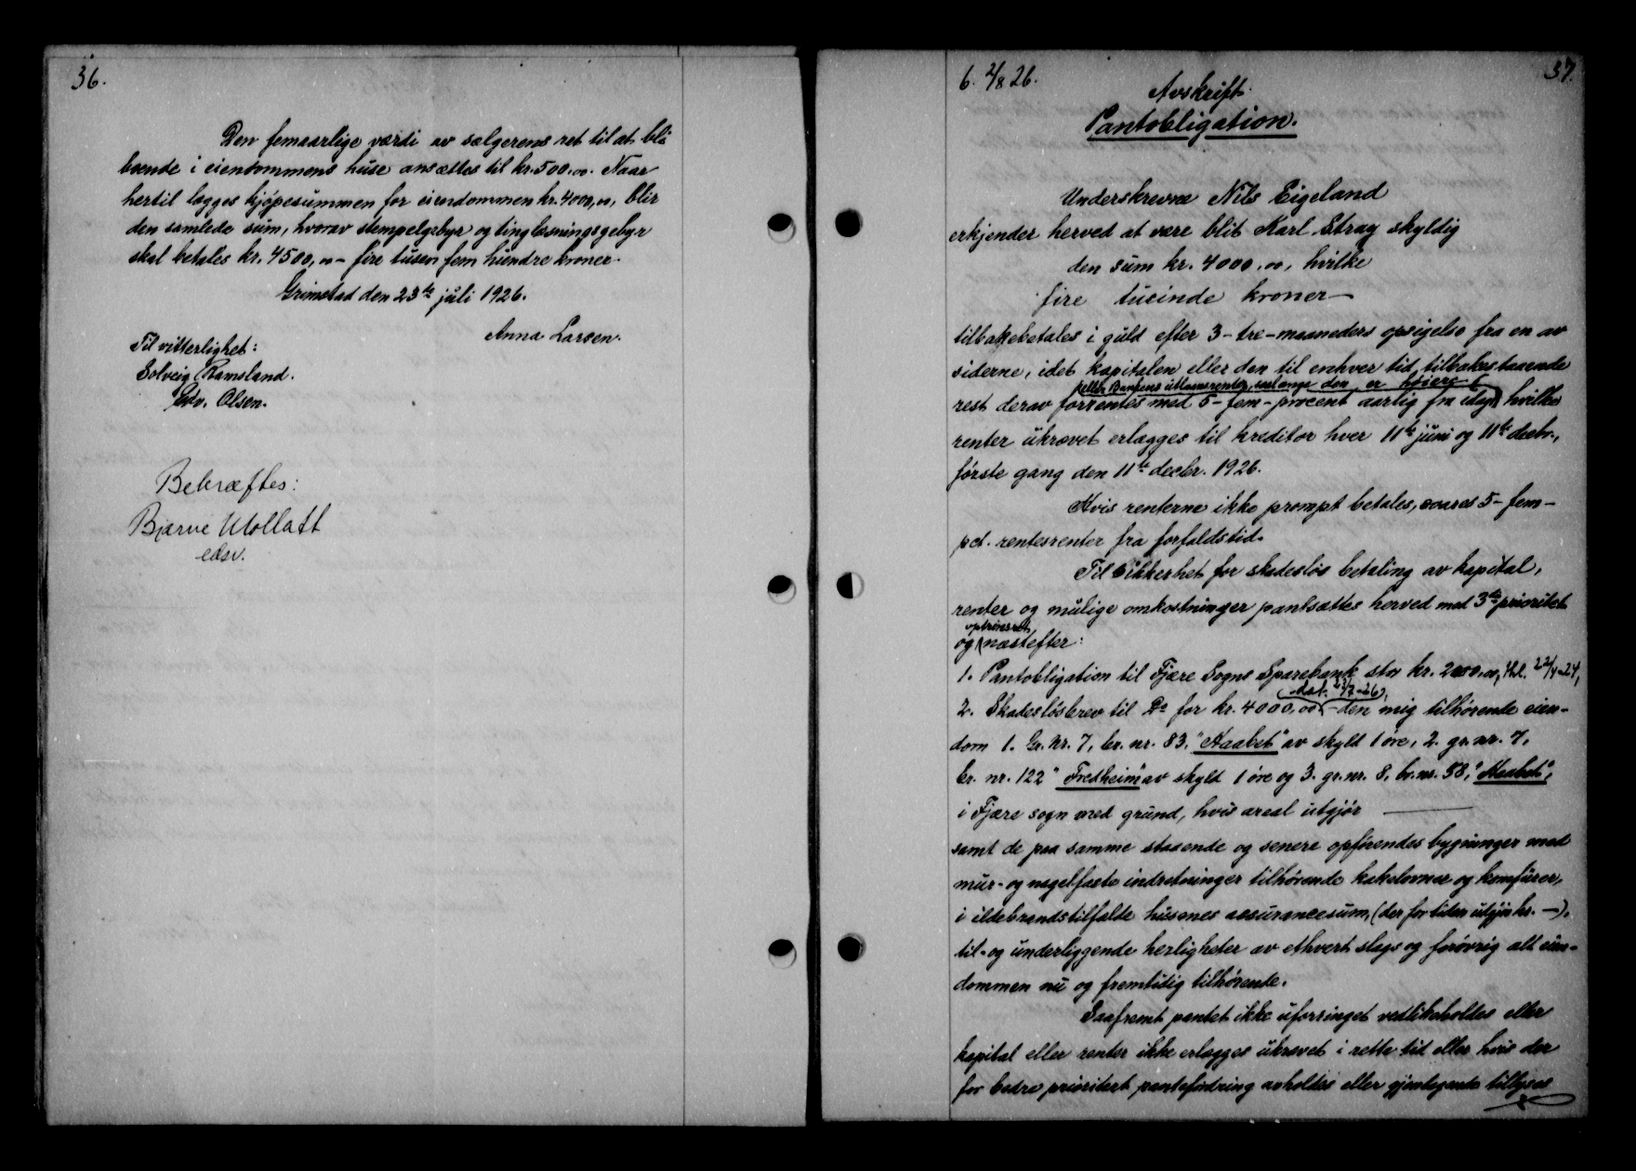 36.
Den femaarlige værdi av sælgerens ret til at bli
boende i eiendommens huse ansættes til kr. 500.00. Naar
hertil lægges kjøpesummen for eiendommen kr. 4000,00, blir
den samlede sum, hvorav stempelgebyr og tinglæsningsgebyr
skal betales kr. 4500,00 - fire tusen fem hundre kroner.
Grimstad den 23de juli 1926.
Anna Larsen.
Til vitterlighet:
Solveig Ramsland.
Edv. Olsen.
Bekræftes:
Bjarne Mollatt
edsv.
6. 2/8 26.
37.
Avskrift.
Pantobligation.
Underskrevne Nils Eigeland
erkjender herved at være blit Karl Stray skyldig
den sum kr. 4000,00, hvilke
fire tusinde kroner -
tilbakebetales i guld efter 3 - tre - maaneders opsigelse fra en av
siderne, idet kapitalen eller den til enhver tid tilbakestaaende
(eller Bankens utlaansrente, saalænge den er høiere)
rest derav forrentes med 5 - fem - procent aarlig fra idag, hvilke
renter ukrævet erlægges til kreditor hver 11te juni og 11te decbr.,
første gang den 11te decbr. 1926.
Hvis renterne ikke prompt betales, svares 5 - fem -
pct. rentesrenter fra forfaldstid.
Til sikkerhet for skadesløs betaling av kapital,
renter og mulige omkostninger pantsættes herved med 3die prioritet
optrinsret
og næstefter:
1. Pantobligation til Fjære Sogns Sparebank stor kr. 2000.00, thl. 22/4-24,
(dat. 23/7-26),
2. Skadesløsbrev til Do for kr. 4000,00 - den mig tilhørende eien-
dom 1. Gr. nr. 7, br. nr. 83, "Haabet" av skyld 1 øre, 2. gr. nr. 7,
br. nr. 122 "Fredheim" av skyld 1 øre og 3. gr. nr. 8, br. nr. 58, "Haabet",
i Fjære sogn med grund, hvis areal utgjør -
samt de paa samme staaende og senere opførendes bygninger med
mur- og nagelfaste indretninger tilhørende kakelovner og komfurer,
i ildebrandstilfælde husenes assurancesum, (der for tiden utgjør kr. -),
til- og underliggende herligheter av ethvert slags og forøvrig alt eien-
dommen nu og fremtidig tilhørende.
Saafremt pantet ikke uforringet vedlikeholdes eller
kapital eller renter ikke erlægges ukrævet i rette tid eller hvis der
for bedre prioritert pantefordring avholdes eller gjentagende tillyses